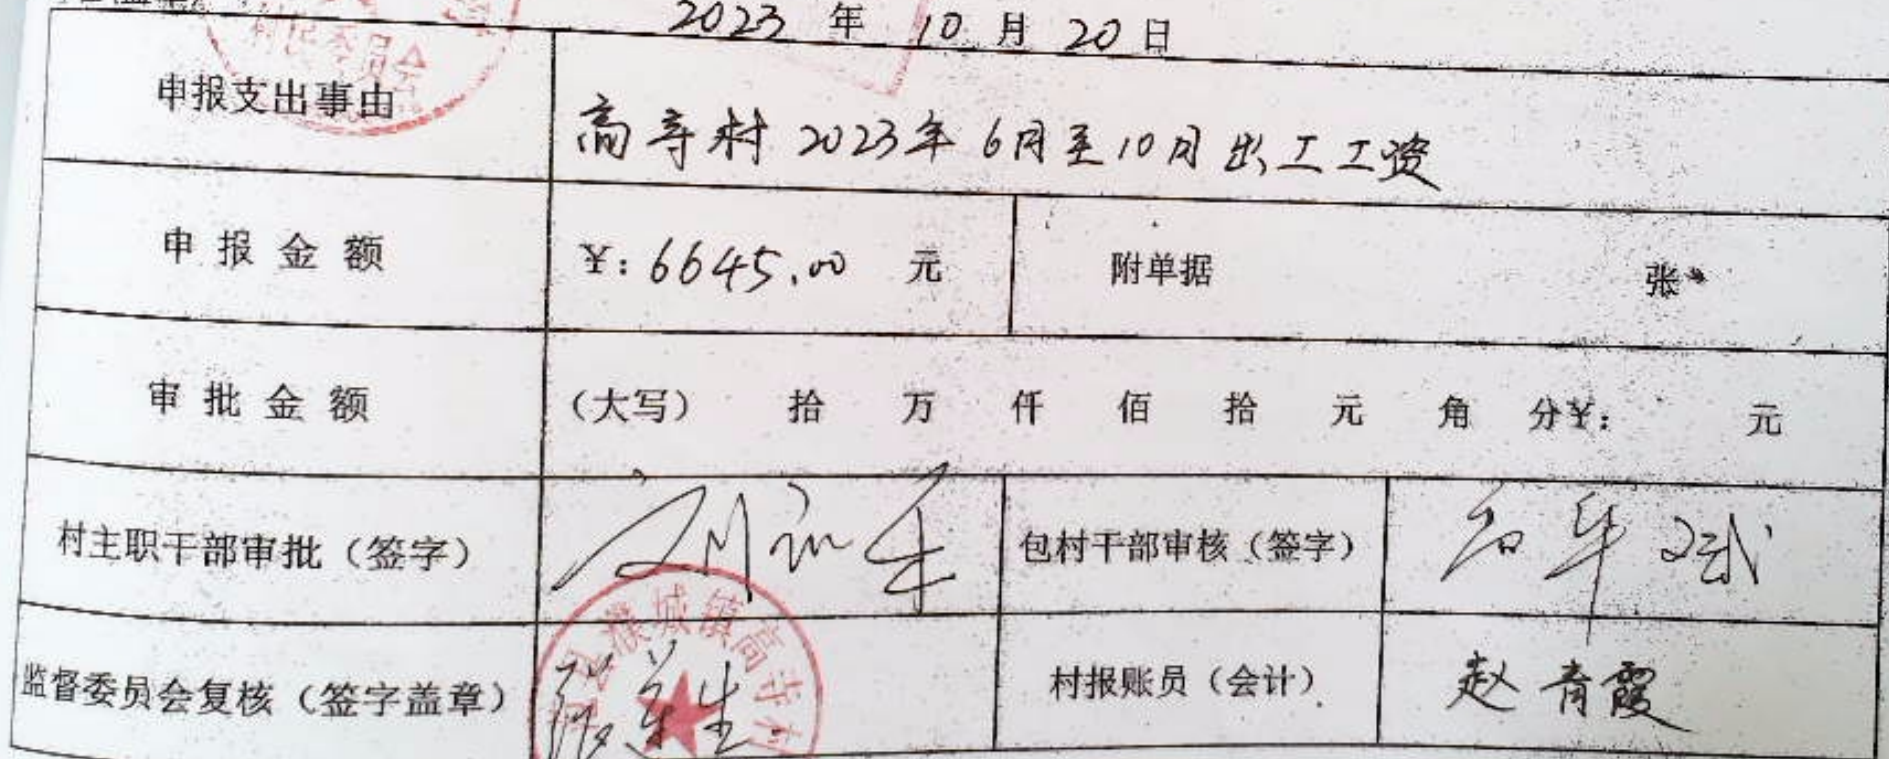 2023 年 10 月 20 日
村民委员会
申报支出事由 高寺村 2023年 6月至10月出工工资
申报金额 ¥: 6645.00 元 附单据 张
审批金额 （大写） 拾 万 仟 佰 拾 元 角 分¥: 元
村主职干部审批（签字） 包村干部审核（签字）
监督委员会复核（签字盖章） 村报账员（会计） 赵青霞
濮城镇高寺村